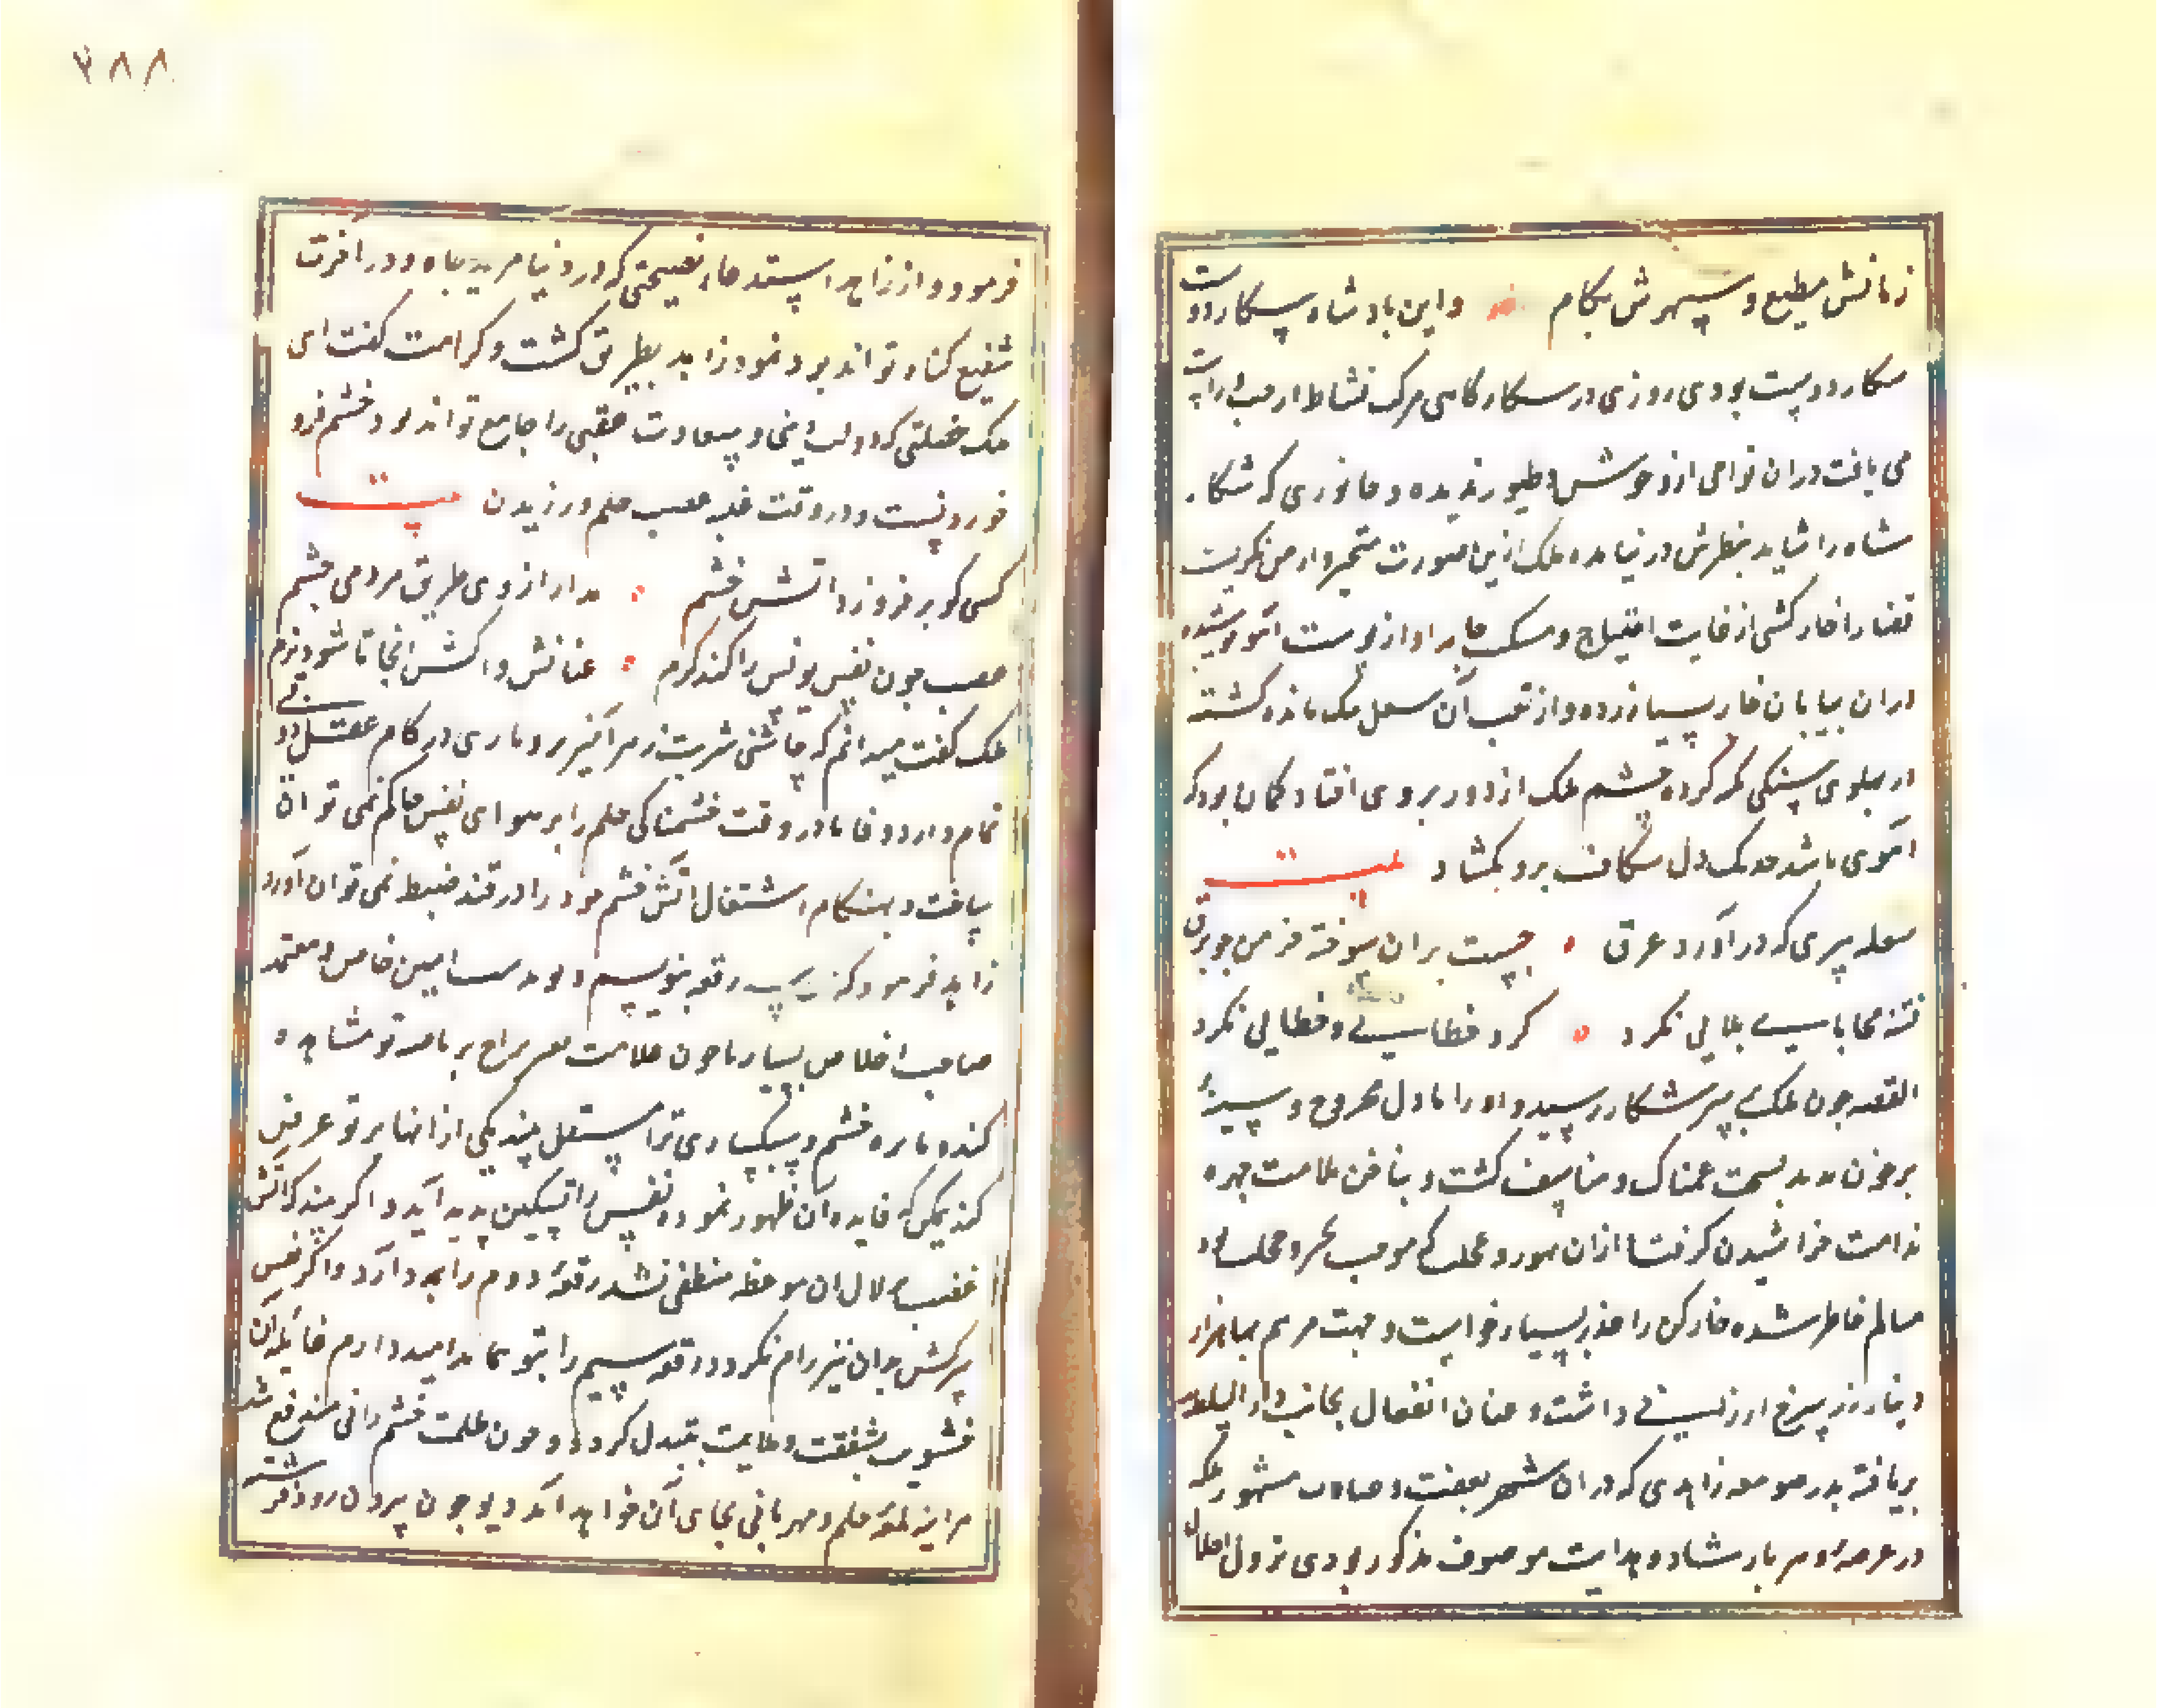 زمانش مطیع و سپهرش بکام واین بادشاه سکار دوست
سکار دوست بودی روزی در سکارگاهی مرکب نشاط از هر جانب
می یافت دران نواحی از وحوش و طیور ندیده و جانوری که شکار
شاه را شاید بنظرش در نیامده ملک ازین صورت متحیروار می نکریست
قضا را خارکشی از غایت احتیاج و مسکنت جامه او از پوست آهو پوشیده
دران بیابان خار بسیار زده و از تعب آن مانده کشته
در پهلوی سنکی کرده چشم ملک از دور بروی افتاد کمان برد که
آهوی باشد خدنک دل شکاف برو بکشاد بیت
که درآورد عرق جست بران سوخته خرمن چو برق
فتنه نکرد کرد خطا و خطایی نکرد
القصه چون ملک بر سر شکار رسید و او را با دل مجروح و سینهٔ
بر خون دید بسمت غمناک و متاسف کشت و بناخن ملامت چهره
ندامت خراشیدن کرفت ازان
سالم خاطر شده خارکن را عذر بسیار خواست و جهت مرهم بها هزار
دینار زر سرخ ارزانی داشت و عنان انفعال بجانب دار السلطنه
بر تافته بدر صومعه زاهدی که دران شهر بعفت و مشهور بلکه
در عرصه عالم بارشاد و هدایت موصوف و مذکور بودی نزول اجلال
۳۸۸
فرمود و از زاهد استدعاء نصیحتی که در دنیا مزید جاه و در آخرت
شفیع کناه تواند بود نمود زاهد بطریق کشت و کرامت کفت ای
ملک خصلتی که دولت دنیا و سعادت عقبی را جامع تواند بود خشم فرو
خوردنست و در وقت غلبه غضب حلم ورزیدن بیت
کسی کو بر فروزد آتش خشم مدار از وی طریق مردمی چشم
غضب چون نفس یونس را کند کرم عنانش واکش انجا تا شود نرم
ملک کفت میدانم که چاشنی شربت زهر آمیز بردباری در کام عقل ذوقی
تمام دارد و فاما در وقت خشمناکی حلم را بر هوای نفس حاکم نمی توان
یافت و بهنکام اشتعال آتش خشم خود را در قید ضبط نمی توان آورد
زاهد فرمود که سه رقعه بنویسم و بدست امین خاص و معتمد
صاحب اخلاص بسپار تا چون علامت تغیر مزاج بر تو مشاهده
کند و نایره خشم و سبکساری ترا مشتعل بیند یکی از انها بر تو عرض
کند یمکن که فایده آن ظهور نموده نفس را تسکین پدید آید و اکر بیند که آتش
غضب بزلال ان موعظه منطفی نشد رقعهٔ دوم را به در آرد و اکر نفس
سرکش بدان نیز رام نکردد رقعه سیم را بتو نماید امید دارم که فایدهٔ آن
خشونت بشفقت و ملایمت مبدل کردد و چون ظلمت خشم رانی مندفع شد
هر اینه لمعهٔ حلم و مهربانی بجای آن خواهد آمد دیو چون بیرون رود فرشته